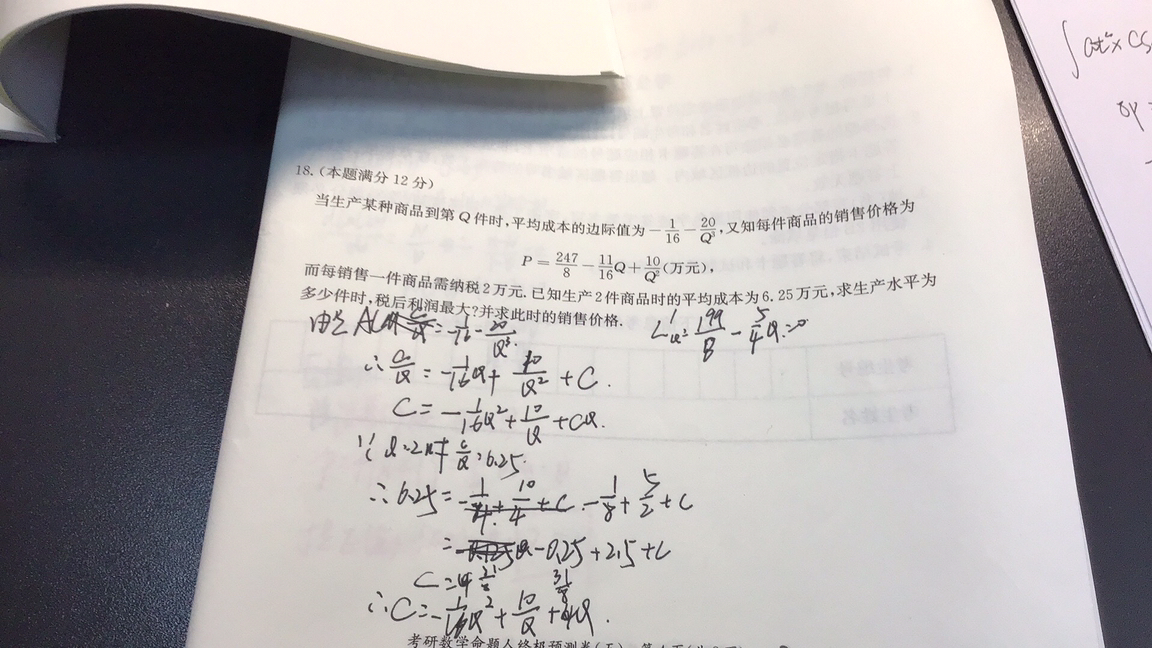 18.(本题满分 12 分)
当生产某种商品到第 Q 件时,平均成本的边际值为 -1/16 - 20/Q³,又知每件商品的销售价格为
P = 247/8 - 11/16 Q + 10/Q² (万元),
而每销售一件商品需纳税 2 万元. 已知生产 2 件商品时的平均成本为 6.25 万元,求生产水平为
多少件时,税后利润最大?并求此时的销售价格.
= -1/16 - 20/Q³
L'Q = 199/8 - 5/4 Q = 0
∴ C/Q = -1/16 Q + 10/Q² + C.
C = -1/16 Q² + 10/Q + CQ.
Q=2时 C/Q = 6.25.
∴ 6.25 = -1/8 + 5/2 + C
= -0.25 + 2.5 + C
∴ C = -1/16 Q² + 10/Q + Q.
考研数学命题人终极预测卷